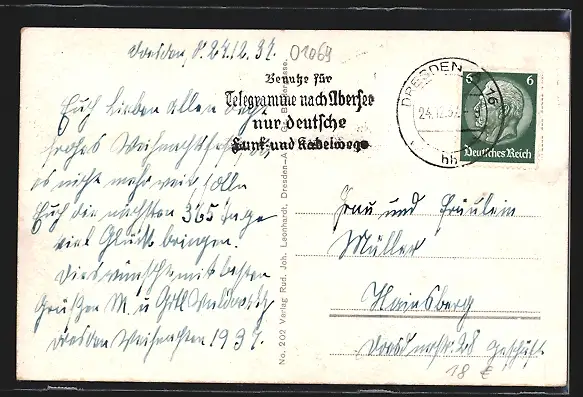 Dresden d. 24.12.37.
01069
Benutze für
Telegramme nach Übersee
nur deutsche
Funk- und Kabelwege
DRESDEN A 16
24.12.37
hh
6 6
Deutsches Reich
Euch Lieben allen
frohes Weihnachtsfest
es nicht mehr weit
Euch die nächsten 365 Tage
viel Glück bringen.
Dies wünscht mit besten
Grüßen M. u.
Dresden Weihnachten 1937.
No. 202 Verlag Rud. Joh. Leonhardt, Dresden-A.
Frau und Fräulein
Müller
Hainsberg
Geschäft.
18 €